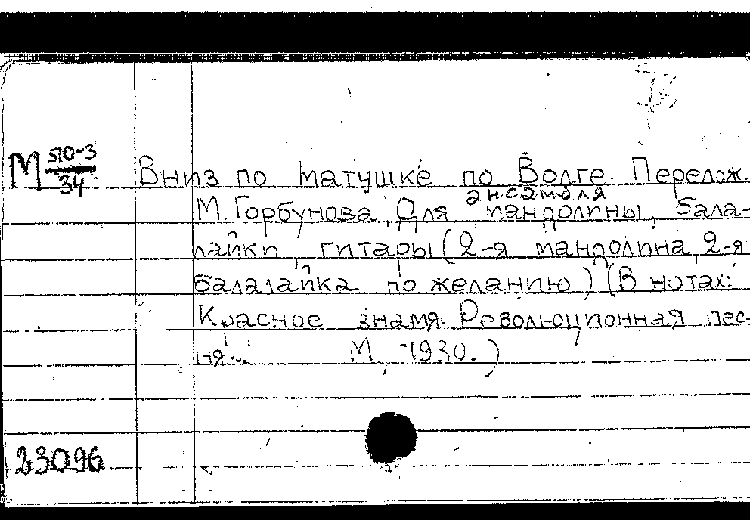 М 510-3/34 Вниз по матушке по Волге. Перелож.
ансамбля
М. Горбунова. Для мандолины, бала-
лайки, гитары (2-я мандолина, 2-я
балалайка по желанию) (В нотах:
Красное знамя. Революционная пес-
ня... М., 1930.)
23096